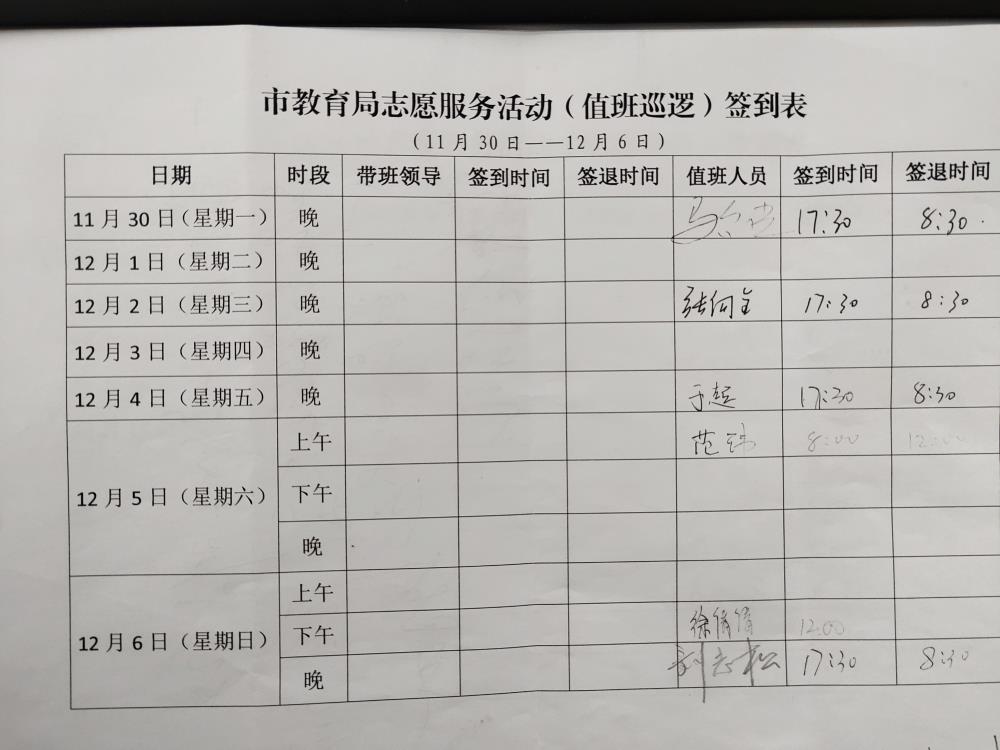 市教育局志愿服务活动（值班巡逻）签到表
（11月30日——12月6日）
日期 时段 带班领导 签到时间 签退时间 值班人员 签到时间 签退时间
11月30日（星期一） 晚 17:30 8:30
12月1日（星期二） 晚
12月2日（星期三） 晚 17:30 8:30
12月3日（星期四） 晚
12月4日（星期五） 晚 于超 17:30 8:30
12月5日（星期六） 上午 范玮 8:00 12:00
下午
晚
12月6日（星期日） 上午
下午 徐倩倩 12:00
晚 刘志松 17:30 8:30